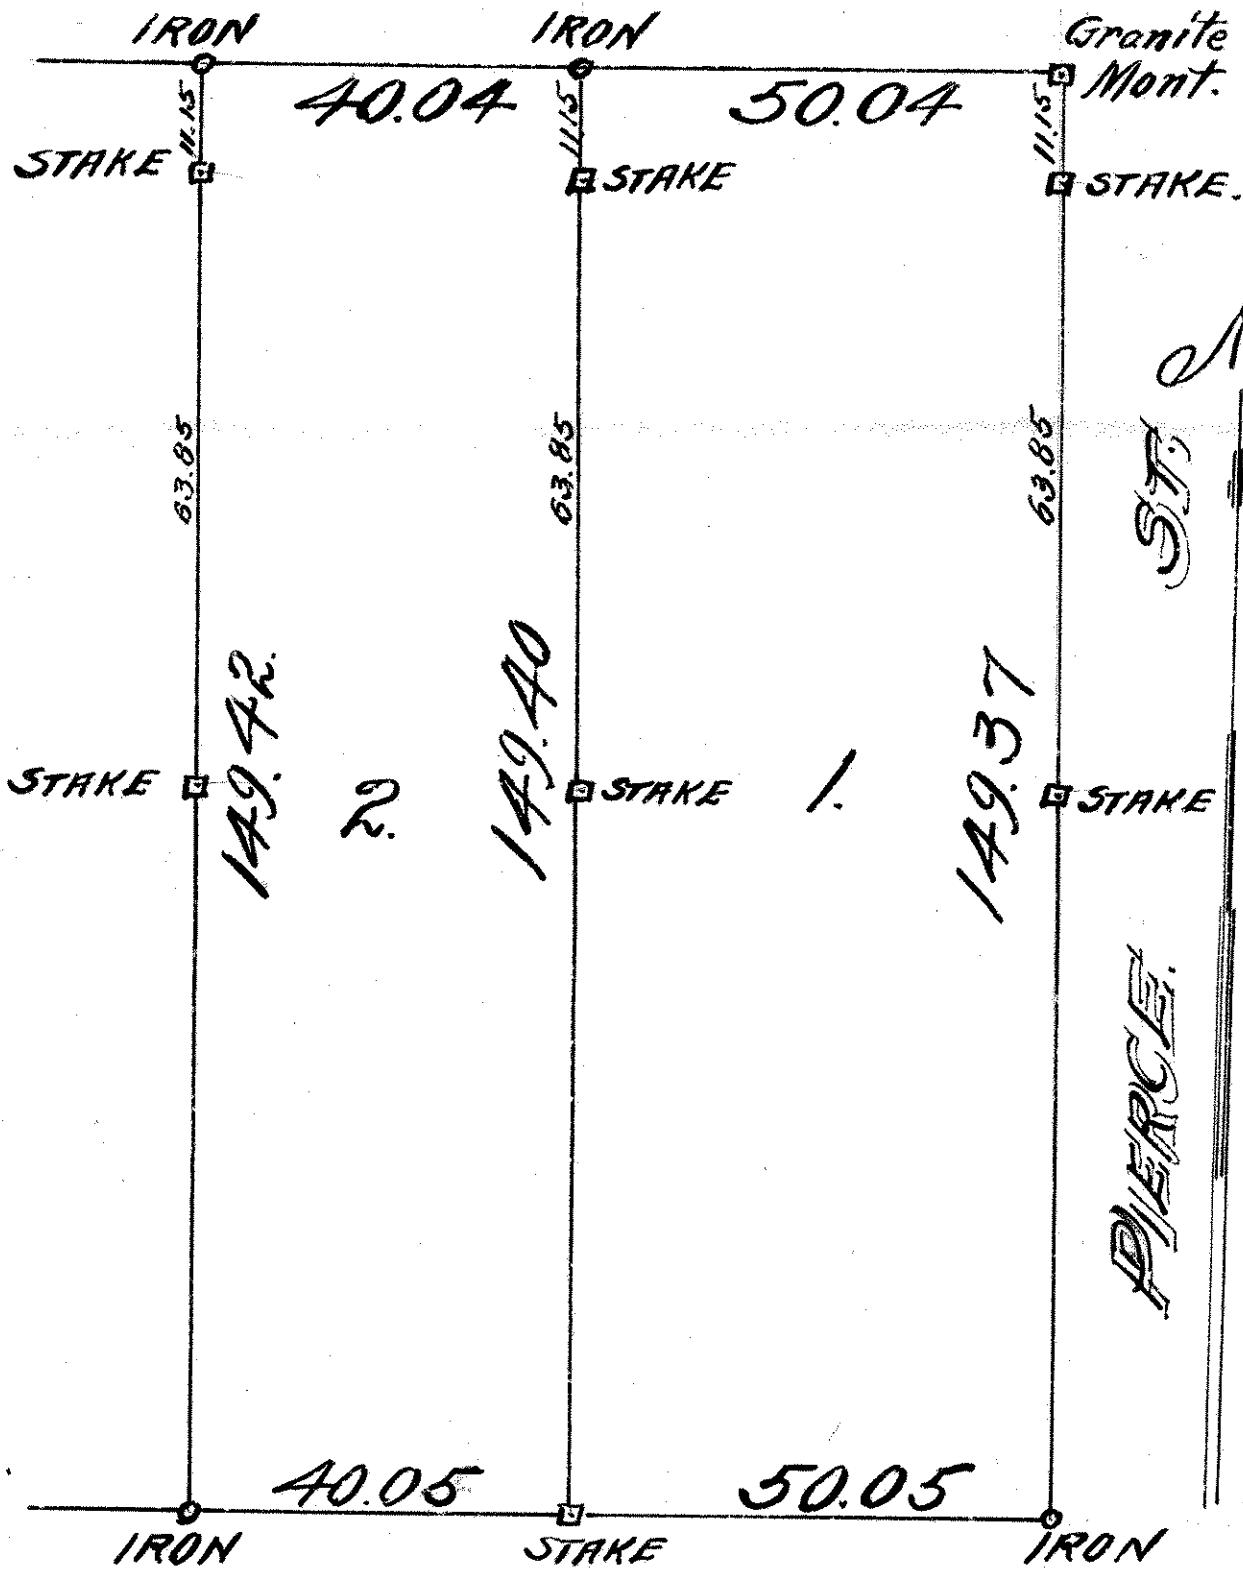 IRON
IRON
Granite
Mont.
40.04
50.04
11.15
11.15
11.15
STAKE
STAKE
STAKE.
63.85
63.85
63.85
ST.
149.42.
149.40
149.37
STAKE
2.
STAKE
1.
STAKE
PIERCE.
40.05
50.05
IRON
STAKE
IRON